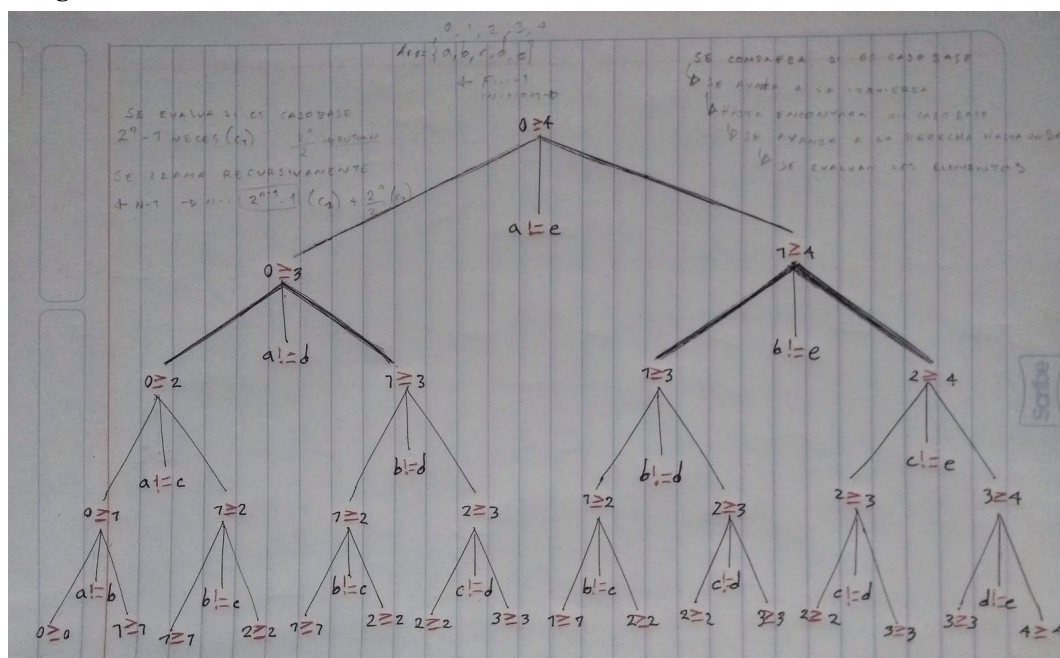 0, 1, 2, 3, 4
Arr={a,b,c,d,e}
SE EVALUA SI ES CASO BASE
2^n-1 VECES (c1)
SE LLAMA RECURSIVAMENTE
SE COMPRUEBA SI ES CASO BASE
SE AVANZA A LA IZQUIERDA
HASTA ENCONTRAR UN CASO BASE
SE AVANZA A LA DERECHA HASTA UN
SE EVALUAN LOS ELEMENTOS
0≥4
a!=e
0≥3 1≥4
a!=d b!=e
0≥2 1≥3 1≥3 2≥4
a!=c b!=d b!=d c!=e
0≥1 1≥2 1≥2 2≥3 1≥2 2≥3 2≥3 3≥4
a!=b b!=c b!=c c!=d b!=c c!=d c!=d d!=e
0≥0 1≥1 1≥1 2≥2 1≥1 2≥2 2≥2 3≥3 1≥1 2≥2 2≥2 3≥3 2≥2 3≥3 3≥3 4≥4
Scribe